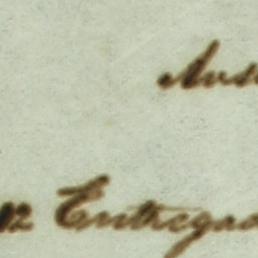 Aus
12 Entregad